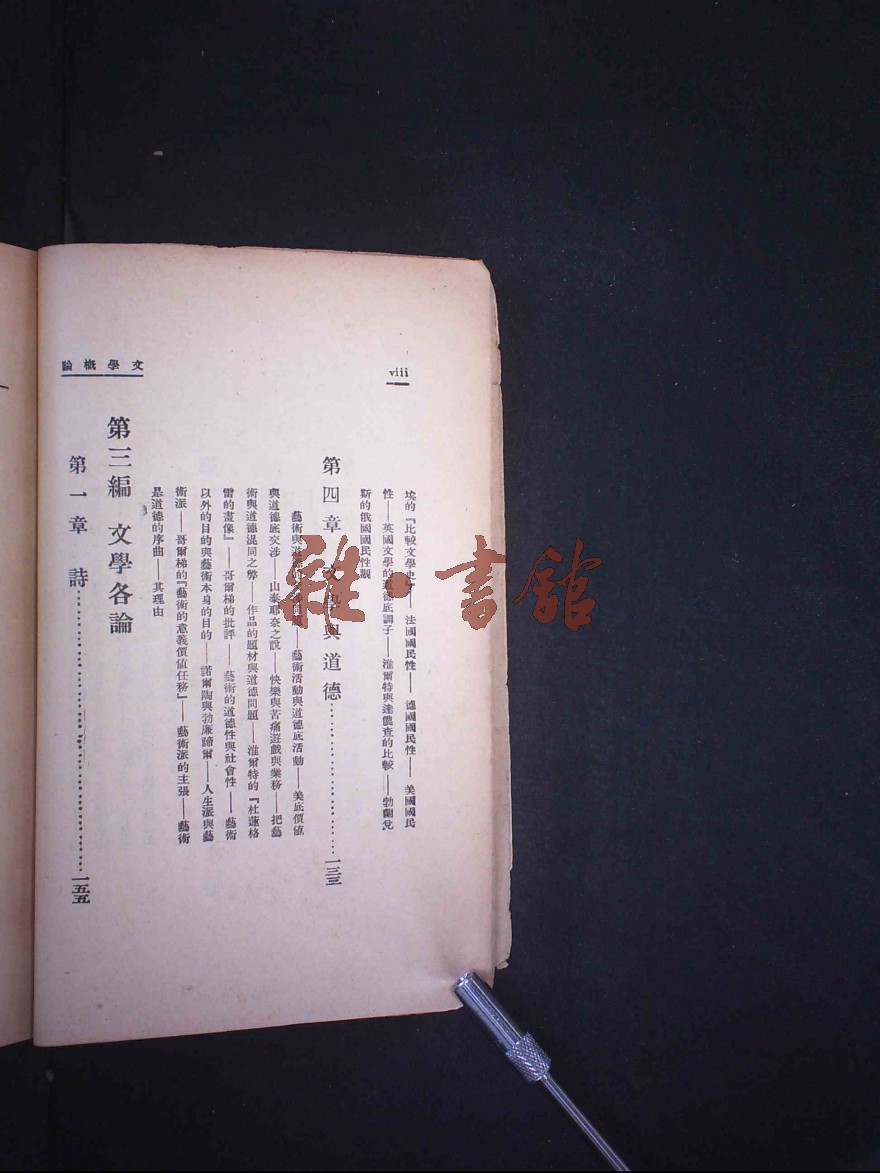 viii
埃的『比較文學史』——法國國民性——德國國民性——美國國民
性——英國文學的道德底調子——淮爾特與達儂查的比較——勃蘭兌
斯的俄國國民性觀
第四章 文學與道德……………………一三三
藝術與道德的——藝術活動與道德底活動——美底價値
與道德底交涉——山泰耶奈之說——快樂與苦痛遊戲與業務——把藝
術與道德混同之弊——作品的題材與道德問題——淮爾特的『杜蓮格
雷的畫像』——哥爾梯的批評——藝術的道德性與社會性——藝術
以外的目的與藝術本身的目的——諾爾陶與勃廉蹄爾——人生派與藝
術派——哥爾梯的『藝術的意義價値任務』——藝術派的主張——藝術
是道德的序曲——其理由
第三編 文學各論
第一章 詩……………………一五五
文學概論
雜·書館